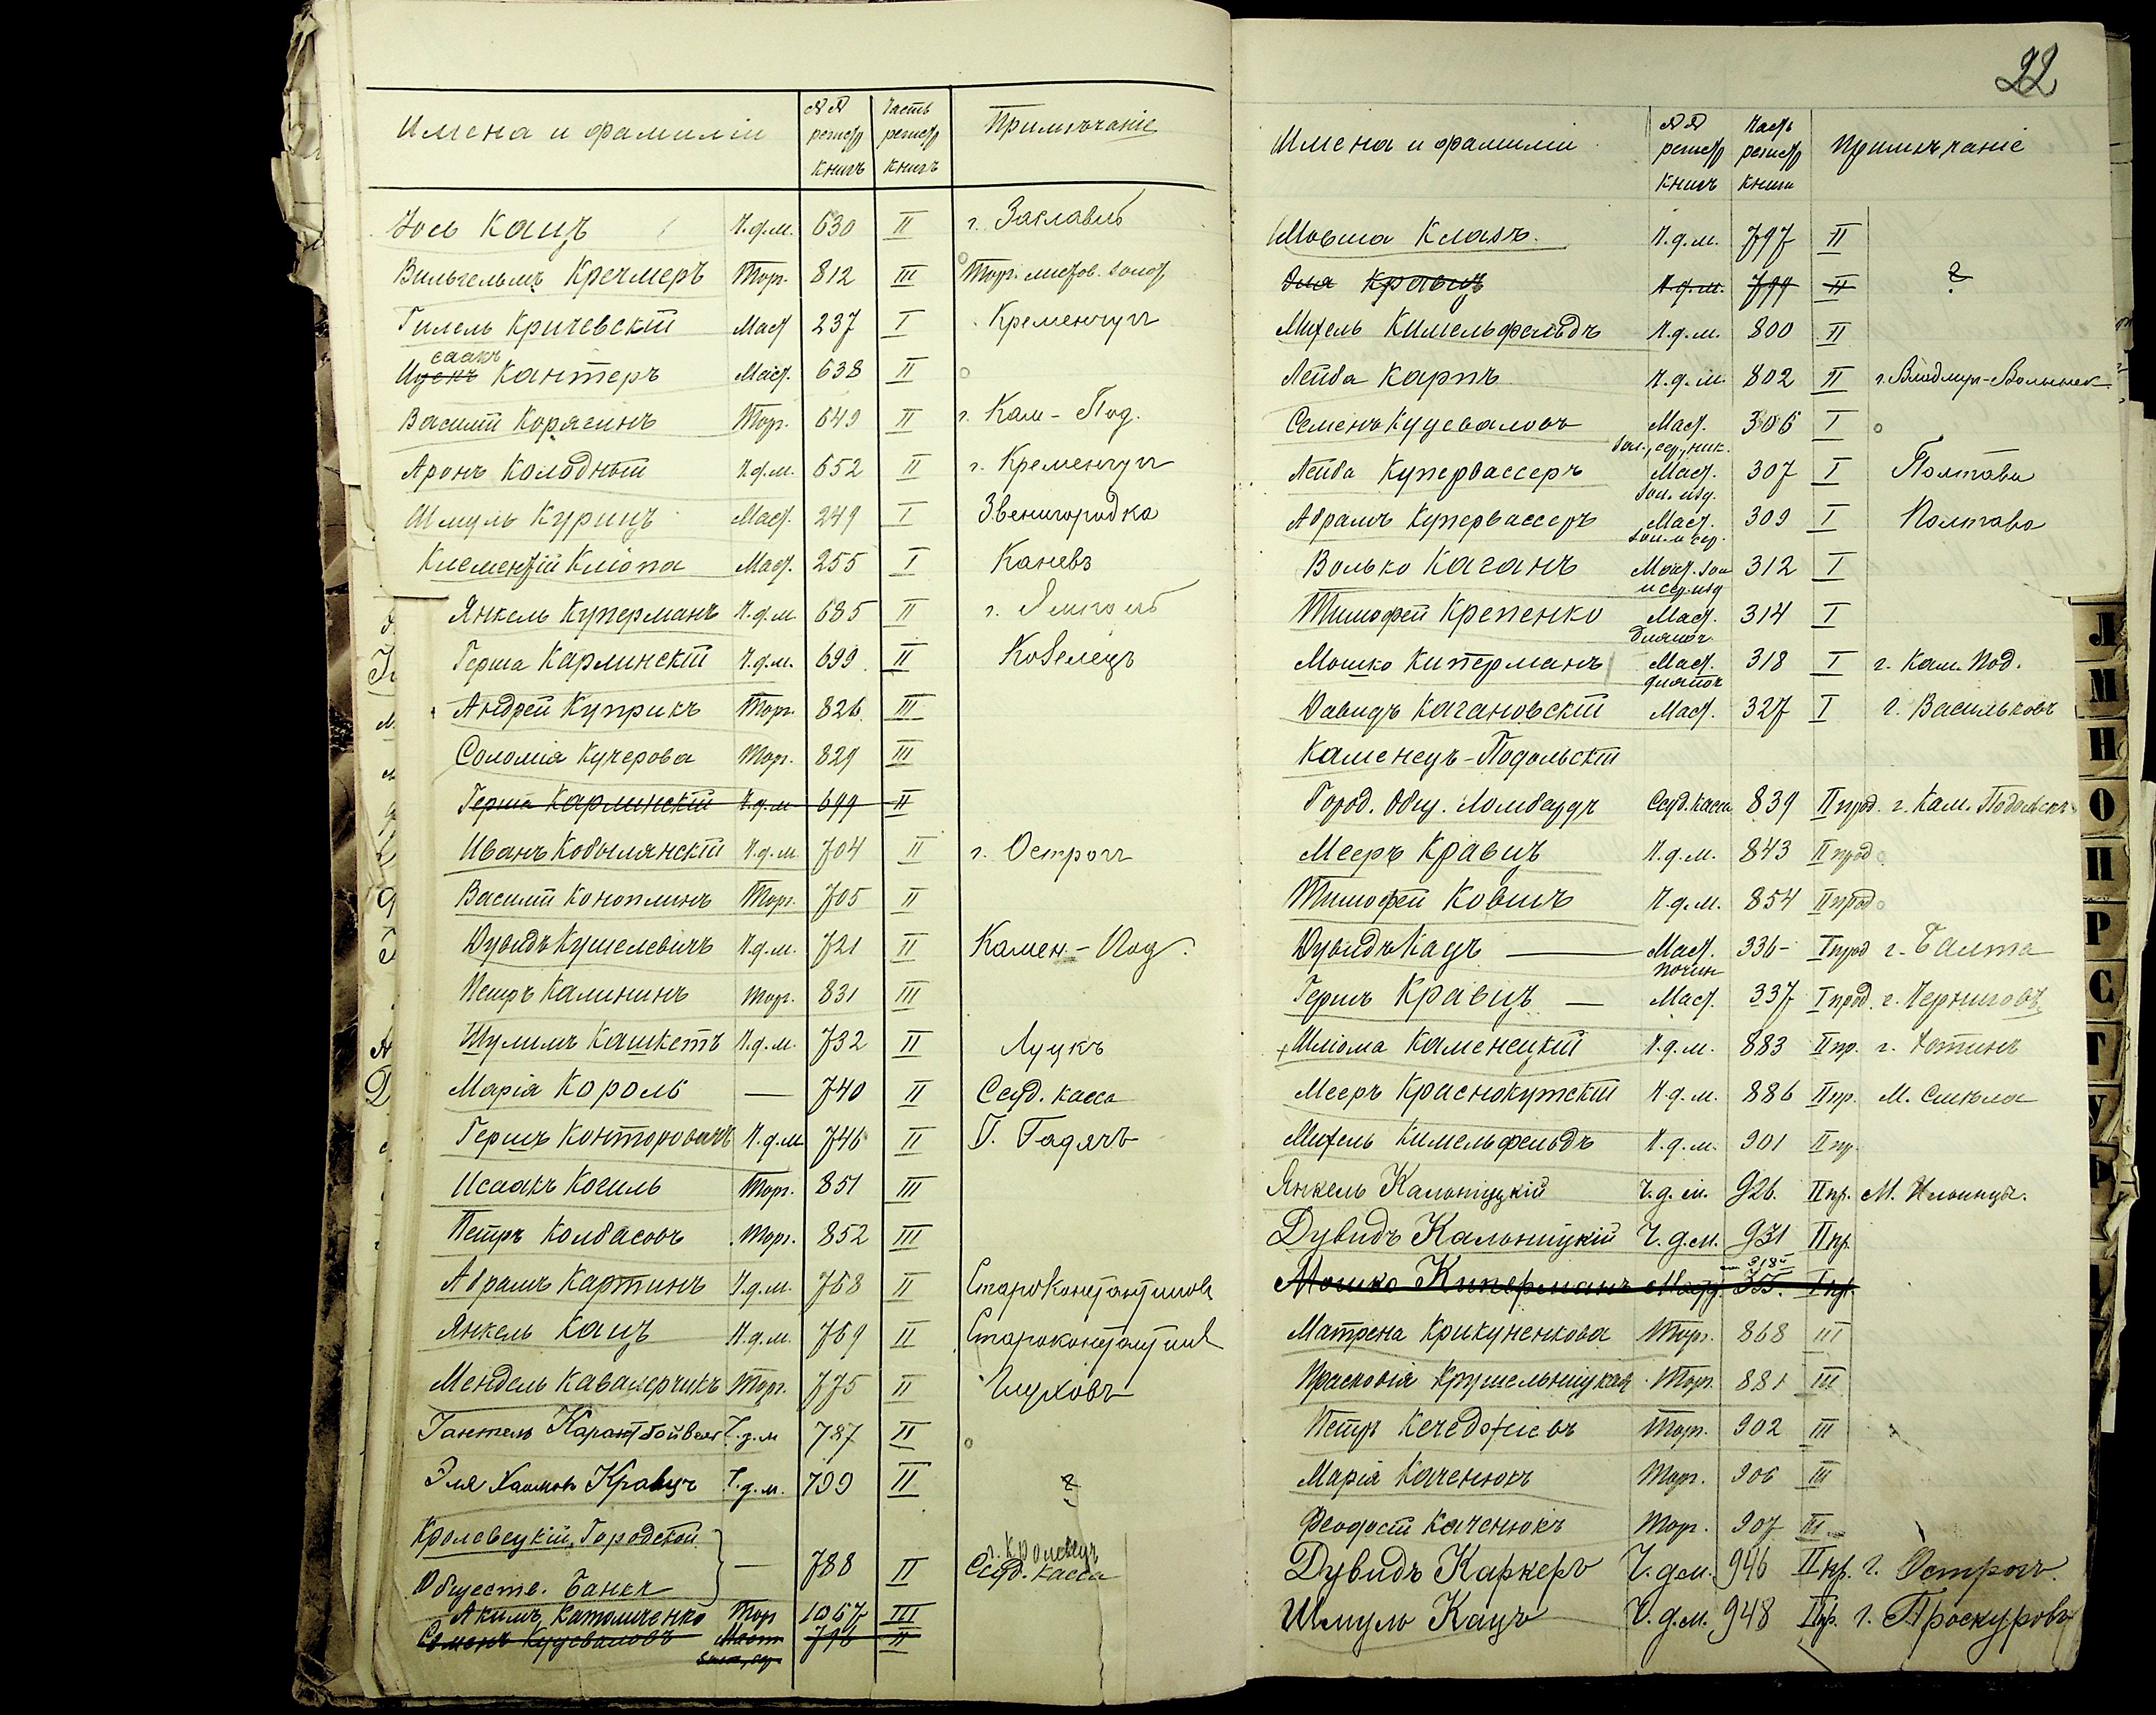 22
Имена и фамиліи №№ регистр книгъ Часть регистр книгъ Примѣчаніе
Іось Кацъ Ч.д.м. 630 II г. Заславль
Вильгельмъ Кречмеръ Торг. 812 III Торг. листов. золот
Гилель Кричевскій Маст 237 I Кременчугъ
саакъ
Ицекъ Кантеръ Маст. 638 II
Василій Корягинъ Торг. 649 II г. Кам-Под.
Аронъ Колодный Ч.д.м. 652 II г. Кременчугъ
Шмуль Курицъ Маст. 249 I Звенигородка
Климентій Кліопа Маст. 255 I Каневъ
Янкель Куперманъ Ч.д.м. 685 II г. Ямполь
Герша Карлинскій Ч.д.м. 699 II Козелецъ
Андрей Куприкъ Торг. 826 III
Соломія Кучерова Торг. 829 III
Герша Карлинскій Ч.д.м 699 II
Иванъ Кобылянскій Ч.д.м. 704 II г. Острогъ
Василій Коноплинъ Торг. 705 II
Дувидъ Кушелевичъ Ч.д.м. 721 II Камен-Под.
Петръ Калининъ Торг. 831 III
Шулимъ Кашкетъ Ч.д.м. 732 II Луцкъ
Марія Король — 740 II Ссуд. касса
Гершъ Конторовичъ Ч.д.м 746 II Г. Гадячъ
Исаакъ Когиль Торг. 851 III
Петръ Колбасовъ Торг. 852 III
Абрамъ Картинъ Ч.д.м. 768 II Староконстантиновъ
Янкель Кацъ Ч.д.м. 769 II Староконстантинов
Мендель Кавалерчикъ Торг. 775 II Глуховъ
Ч.д.м 787 II
Эля Хаимовъ Кравецъ Ч.д.м. 799 II ?
Кролевецкій Городской
Обществ. Банкъ — 788 II г. Кролевецъ Ссуд. касса
Акимъ Катюшченко Торг 1067 III
Семенъ Кудеваловъ Маст 796 II
зол., сер.
Имена и фамиліи №№ регистр книгъ Часть регистр книги Примѣчаніе
Мовша Клазъ. Ч.д.м. 797 II
Эля Кравецъ Ч.д.м. 799 II ?
Михель Кимельфельдъ Ч.д.м. 800 II
Лейба Карпъ Ч.д.м. 802 II г. Владимір-Волынск.
Семенъ Кудеваловъ Маст. 306 I
зол., сер., ник.
Лейба Купервассеръ Маст. 307 I Полтава
зол. изд.
Абрамъ Купервассеръ Маст. 309 I Полтава
зол. и сер.
Волько Каганъ Маст. зол 312 I
и сер. изд
Тимофей Крепенко Маст. 314 I
Мошко Киперманъ Маст. 318 I г. Кам. Под.
Давидъ Кагановскій Маст. 327 I г. Васильковъ
Каменецъ-Подольскій
Город. Общ. Ломбардъ Ссуд. касса 839 II прод. г. Кам. Подольскъ
Мееръ Кравецъ Ч.д.м. 843 II прод
Тимофей Ковшъ Ч.д.м. 854 II прод
Дувидъ Кацъ — Маст. 336- I прод г. Балта
почин
Гершъ Кравецъ — Маст. 337 I прод. г. Черниговъ
Шлiома Каменецкій Ч.д.м. 883 II пр. г. Хотинъ
Мееръ Краснокутскій Ч.д.м. 886 II пр. М. Смѣла
Михель Кимельфельдъ Ч.д.м. 901 II пр.
Янкель Кальницкій Ч.д.м. 926. II пр. М. Ильинцы.
Дувидъ Кальницкій Ч.д.м. 931 II пр.
318
Мошко Киперманъ Маст. 355. I пр.
Матрена Крикуненкова Торг. 868 III
Прасковія Крушельницкая Торг 881 III
Петръ Кечеджіевъ Торг. 902 III
Марія Каченюкъ Торг. 906 III
Феодосій Каченюкъ Торг. 907 III
Дувидъ Каркеръ Ч.д.м. 946 II пр. г. Острогъ.
Шмуль Кацъ Ч.д.м. 948 II пр. г. Проскуровъ
Л
М
Н
О
П
Р
С
Т
У